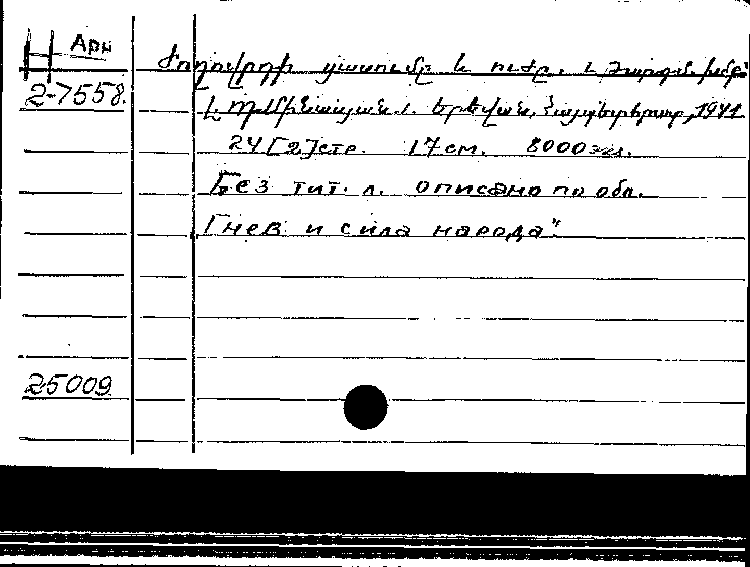 Н Арм
Ժողովրդի ցասումը և ուժը.
2-7558.
Երևան, Հայպետհրատ, 1941
24 [2] стр. 17 см. 8000 эк.
Без тит. л. описано по обл.
Гнев и сила народа".
25009